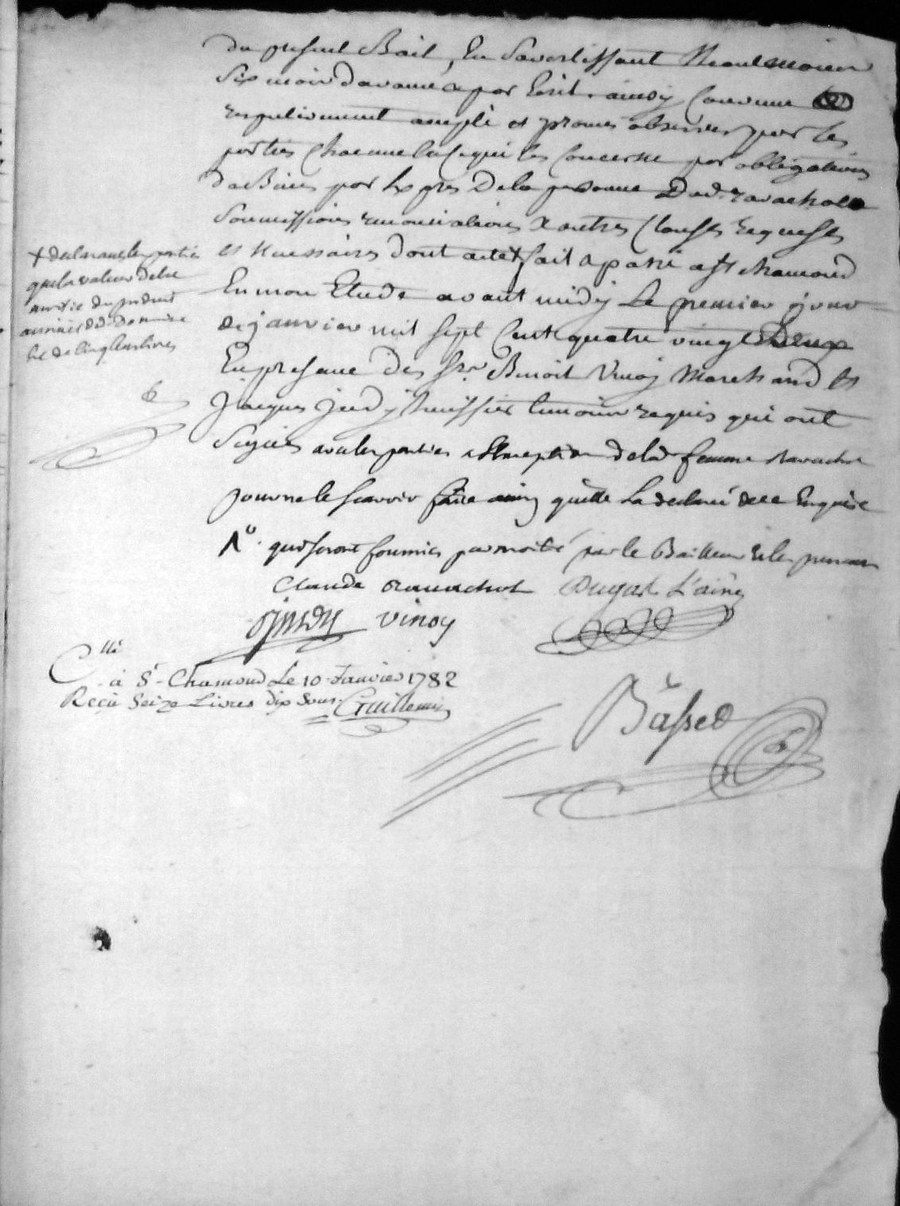 du presend Bail, En Savertissant Neantmoien
Six moix davance par Ecrit. ainsy Convenue
respectivement accepté et promis observer par les
parties Chacune En Ce qui les Concerne par obligations
de Biens par Expres De la personne Dud. ravachol
Soumissions renonciations & autres Clauses requises
et necessaires dont acte + fait a passé a St. chamond
En mon Etude avant midy Le premier jour
de janvier mil sept Cent quatre vingt Deux
En presance des Srs. Benoit Vinoy Marchand Et
jacques jurdy huissier temoins requis qui ont
Signés avec les parties a l'Exception de lad. femme Ravachol
pour ne le scavoir faire ainsy qu'elle La declaré de ce Enquise
+ declarant les parties
que la valeur de la
moitié du produit
annuel dud. Domaine
Est de Cinq Cens livres
No. qui seront fournies par moitié par le Bailleur & les preneurs
Claude Ravachol Dugas L'ainé
jurdy vinoy
Clle
à St. Chamond Le 10 Janvier 1782
Reçu Seize Livres dix Sous Guillemin
Bâsset